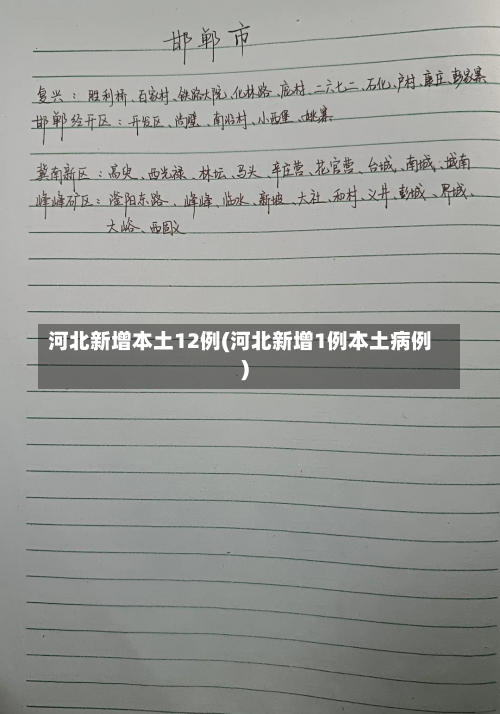 邯郸市
复兴：胜利桥、百家村、铁路大院、化林路、庞村、二六七二、石化、户村、康庄、彭家寨
邯郸经开区：开发区、尚璧、南沿村、小西堡、姚寨
冀南新区：高臾、西光禄、林坛、马头、辛庄营、花官营、台城、南城、城南
峰峰矿区：滏阳东路、峰峰、临水、新坡、大社、和村、义井、彭城、界城、
大峪、西固义
河北新增本土12例(河北新增1例本土病例
)